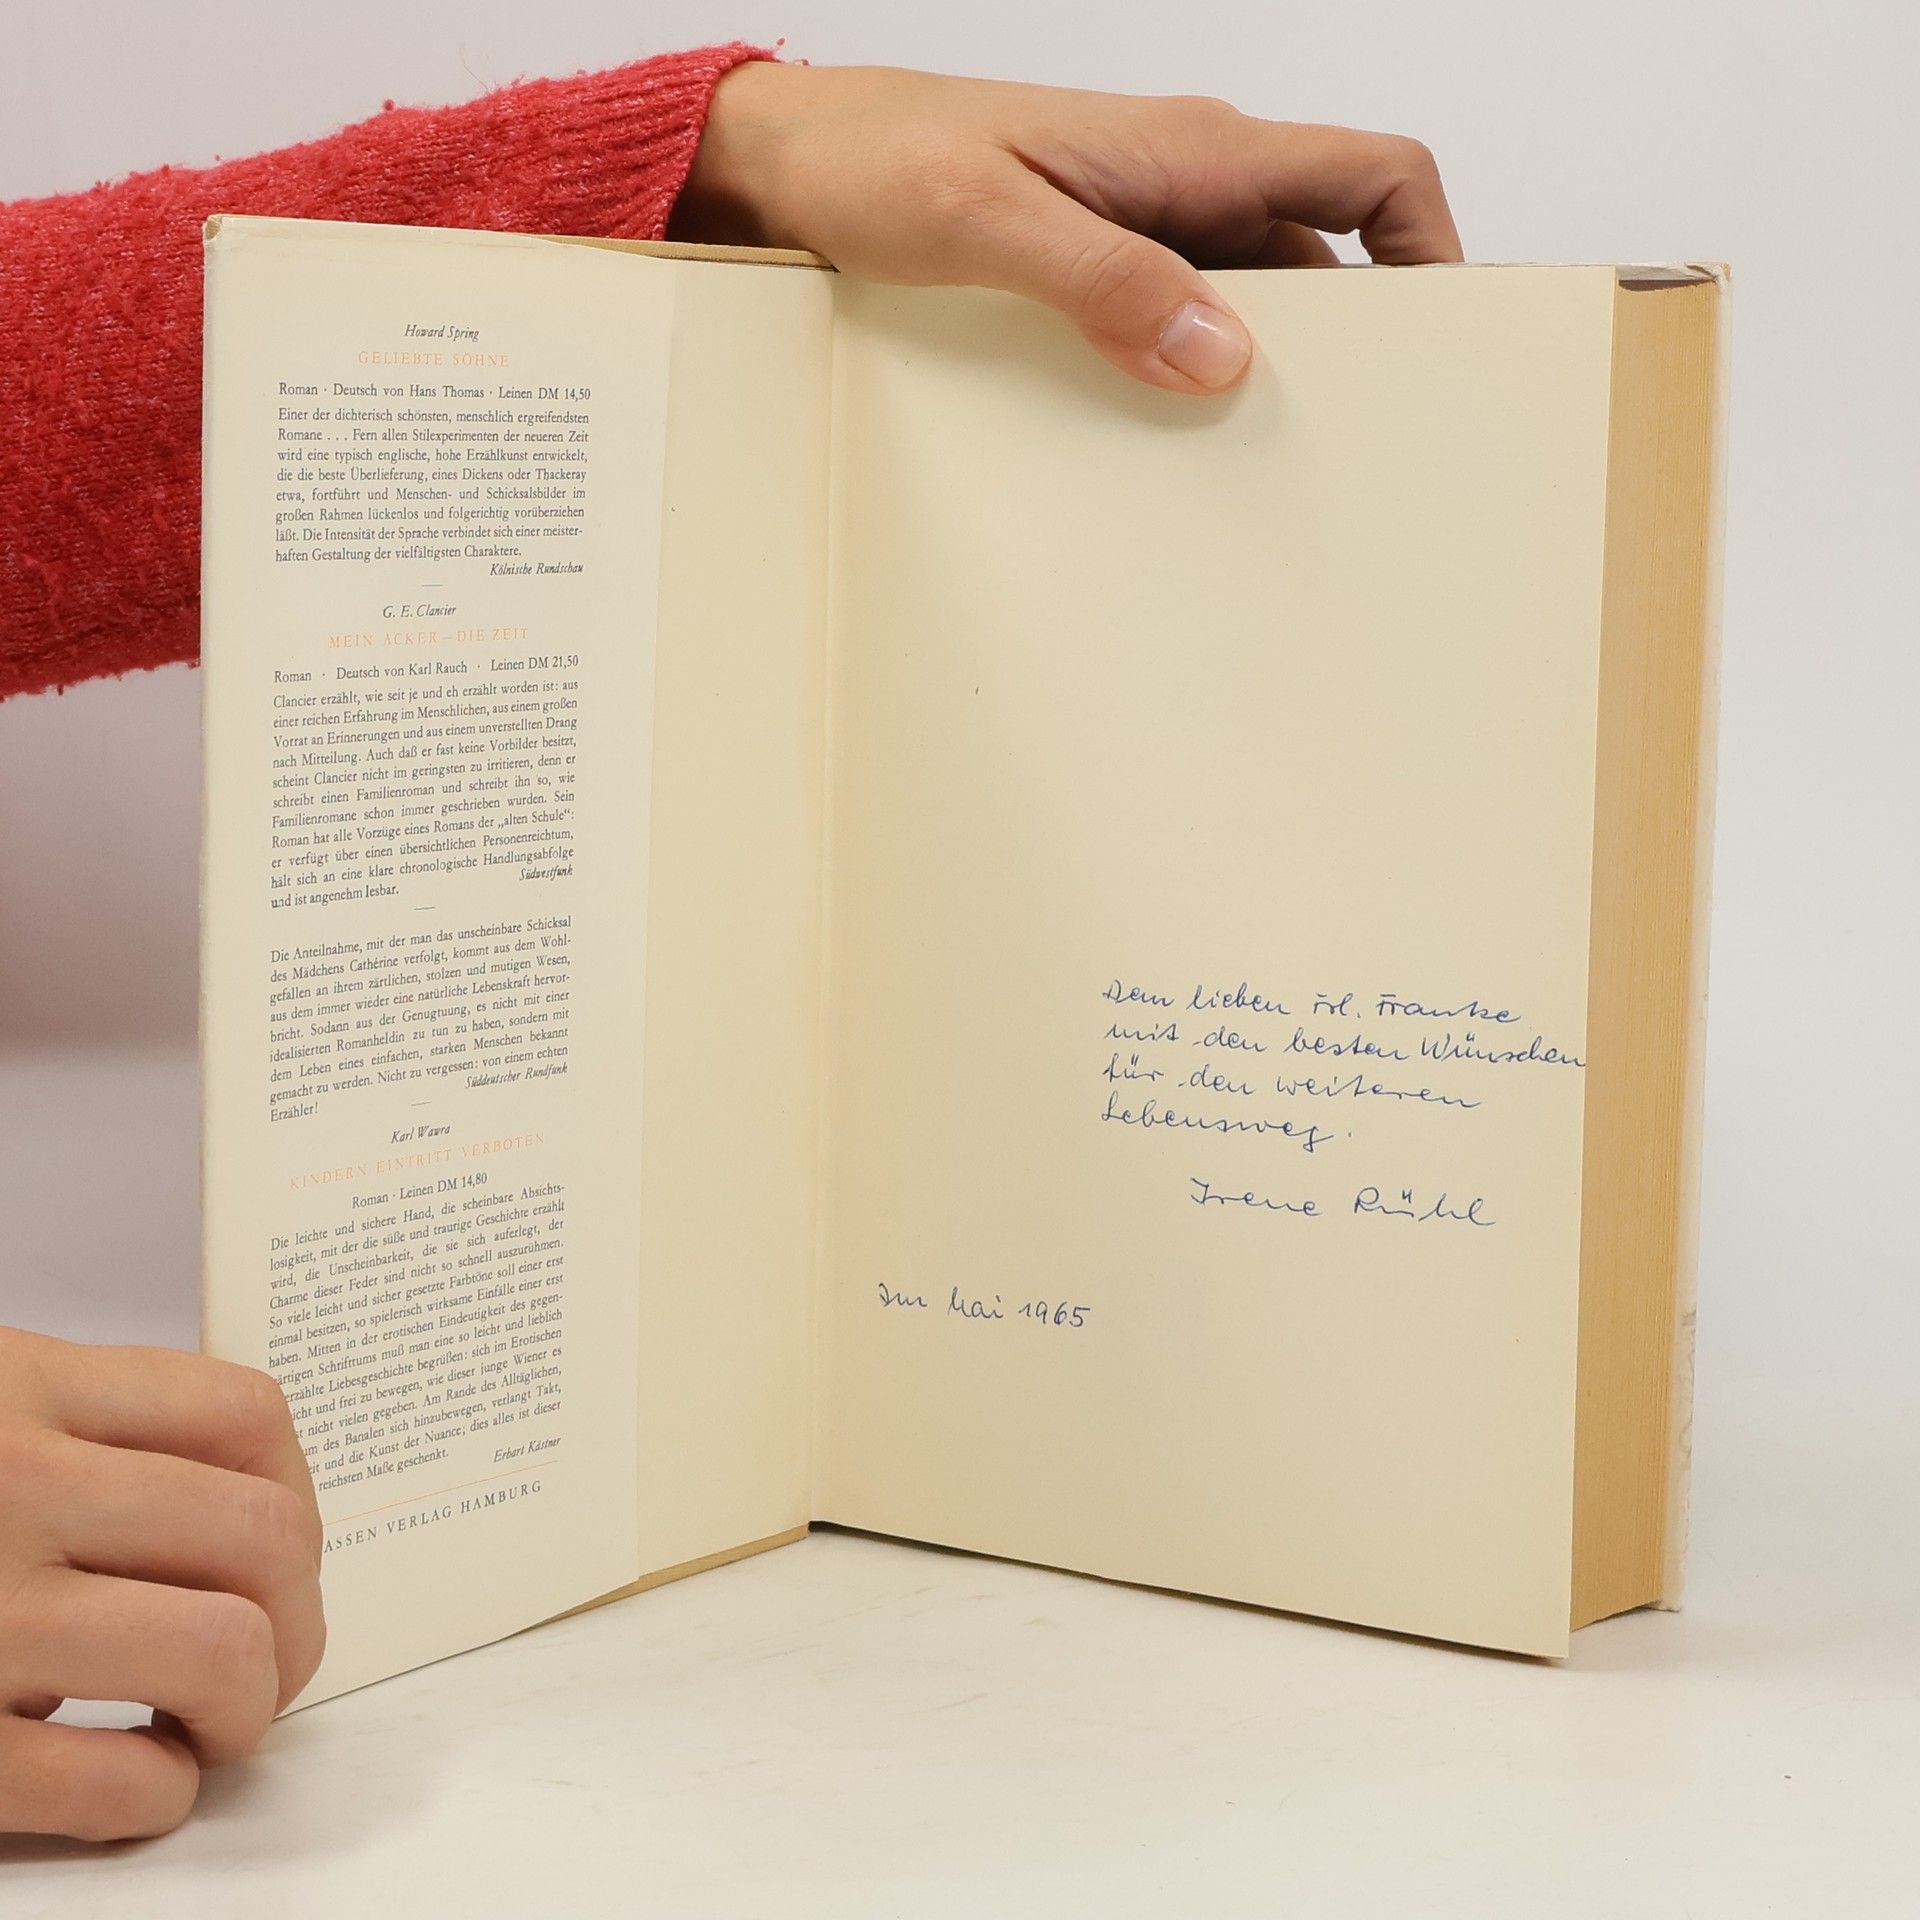 Howard Spring
GELIEBTE SÖHNE
Roman · Deutsch von Hans Thomas · Leinen DM 14,50
Einer der dichterisch schönsten, menschlich ergreifendsten
Romane . . . Fern allen Stilexperimenten der neueren Zeit
wird eine typisch englische, hohe Erzählkunst entwickelt,
die die beste Überlieferung, eines Dickens oder Thackeray
etwa, fortführt und Menschen- und Schicksalsbilder im
großen Rahmen lückenlos und folgerichtig vorüberziehen
läßt. Die Intensität der Sprache verbindet sich einer meister-
haften Gestaltung der vielfältigsten Charaktere.
Kölnische Rundschau
G. E. Clancier
MEIN ACKER – DIE ZEIT
Roman · Deutsch von Karl Rauch · Leinen DM 21,50
Clancier erzählt, wie seit je und eh erzählt worden ist: aus
einer reichen Erfahrung im Menschlichen, aus einem großen
Vorrat an Erinnerungen und aus einem unverstellten Drang
nach Mitteilung. Auch daß er fast keine Vorbilder besitzt,
scheint Clancier nicht im geringsten zu irritieren, denn er
schreibt einen Familienroman und schreibt ihn so, wie
Familienromane schon immer geschrieben wurden. Sein
Roman hat alle Vorzüge eines Romans der „alten Schule“:
er verfügt über einen übersichtlichen Personenreichtum,
hält sich an eine klare chronologische Handlungsabfolge
und ist angenehm lesbar.
Südwestfunk
Die Anteilnahme, mit der man das unscheinbare Schicksal
des Mädchens Cathérine verfolgt, kommt aus dem Wohl-
gefallen an ihrem zärtlichen, stolzen und mutigen Wesen,
aus dem immer wieder eine natürliche Lebenskraft hervor-
bricht. Sodann aus der Genugtuung, es nicht mit einer
idealisierten Romanheldin zu tun zu haben, sondern mit
dem Leben eines einfachen, starken Menschen bekannt
gemacht zu werden. Nicht zu vergessen: von einem echten
Erzähler!
Süddeutscher Rundfunk
Karl Wawra
KINDERN EINTRITT VERBOTEN
Roman · Leinen DM 14,80
Die leichte und sichere Hand, die scheinbare Absichts-
losigkeit, mit der die süße und traurige Geschichte erzählt
wird, die Unscheinbarkeit, die sie sich auferlegt, der
Charme dieser Feder sind nicht so schnell auszurühmen.
So viele leicht und sicher gesetzte Farbtöne soll einer erst
einmal besitzen, so spielerisch wirksame Einfälle einer erst
haben. Mitten in der erotischen Eindeutigkeit des gegen-
ärtigen Schrifttums muß man eine so leicht und lieblich
erzählte Liebesgeschichte begrüßen: sich im Erotischen
icht und frei zu bewegen, wie dieser junge Wiener es
t nicht vielen gegeben. Am Rande des Alltäglichen,
um des Banalen sich hinzubewegen, verlangt Takt,
eit und die Kunst der Nuance; dies alles ist dieser
reichsten Maße geschenkt.
Erhart Kästner
ASSEN VERLAG HAMBURG
Dem lieben Frl. Franke
mit den besten Wünschen
für den weiteren
Lebensweg.
Irene Rühl
Im Mai 1965